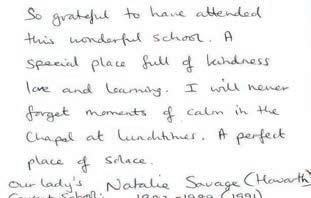 So grateful to have attended
this wonderful school. A
special place full of kindness
love and learning. I will never
forget moments of calm in the
Chapel at lunchtimes. A perfect
place of solace.
Our Lady's Natalie Savage (Howarth)
Convent School: (1991)